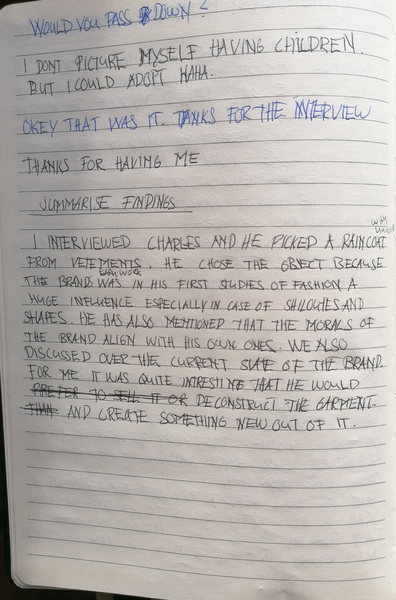 WOULD YOU PASS DOWN?
I DONT PICTURE MYSELF HAVING CHILDREN.
BUT I COULD ADOPT HAHA.
OKEY THAT WAS IT. TANKS FOR THE INTERVIEW
THANKS FOR HAVING ME
SUMMARISE FINDINGS
I INTERVIEWED CHARLES AND HE PICKED A RAINCOAT
FROM VETEMENTS. HE CHOSE THE OBJECT BECAUSE
EARLY WORK
THE BRANDS WAS IN HIS FIRST STUDIES OF FASHION A
HUGE INFLUENCE ESPECIALLY IN CASE OF SHILOUTES AND
SHAPES. HE HAS ALSO MENTIONED THAT THE MORALS OF
THE BRAND ALIGN WITH HIS OWN ONES. WE ALSO
DISCUSSED OVER THE CURRENT STATE OF THE BRAND.
FOR ME IT WAS QUITE INTRESTING THAT HE WOULD
PREFER TO SELL IT OR DECONSTRUCT THE GARMENT.
THAN AND CREATE SOMETHING NEW OUT OF IT.